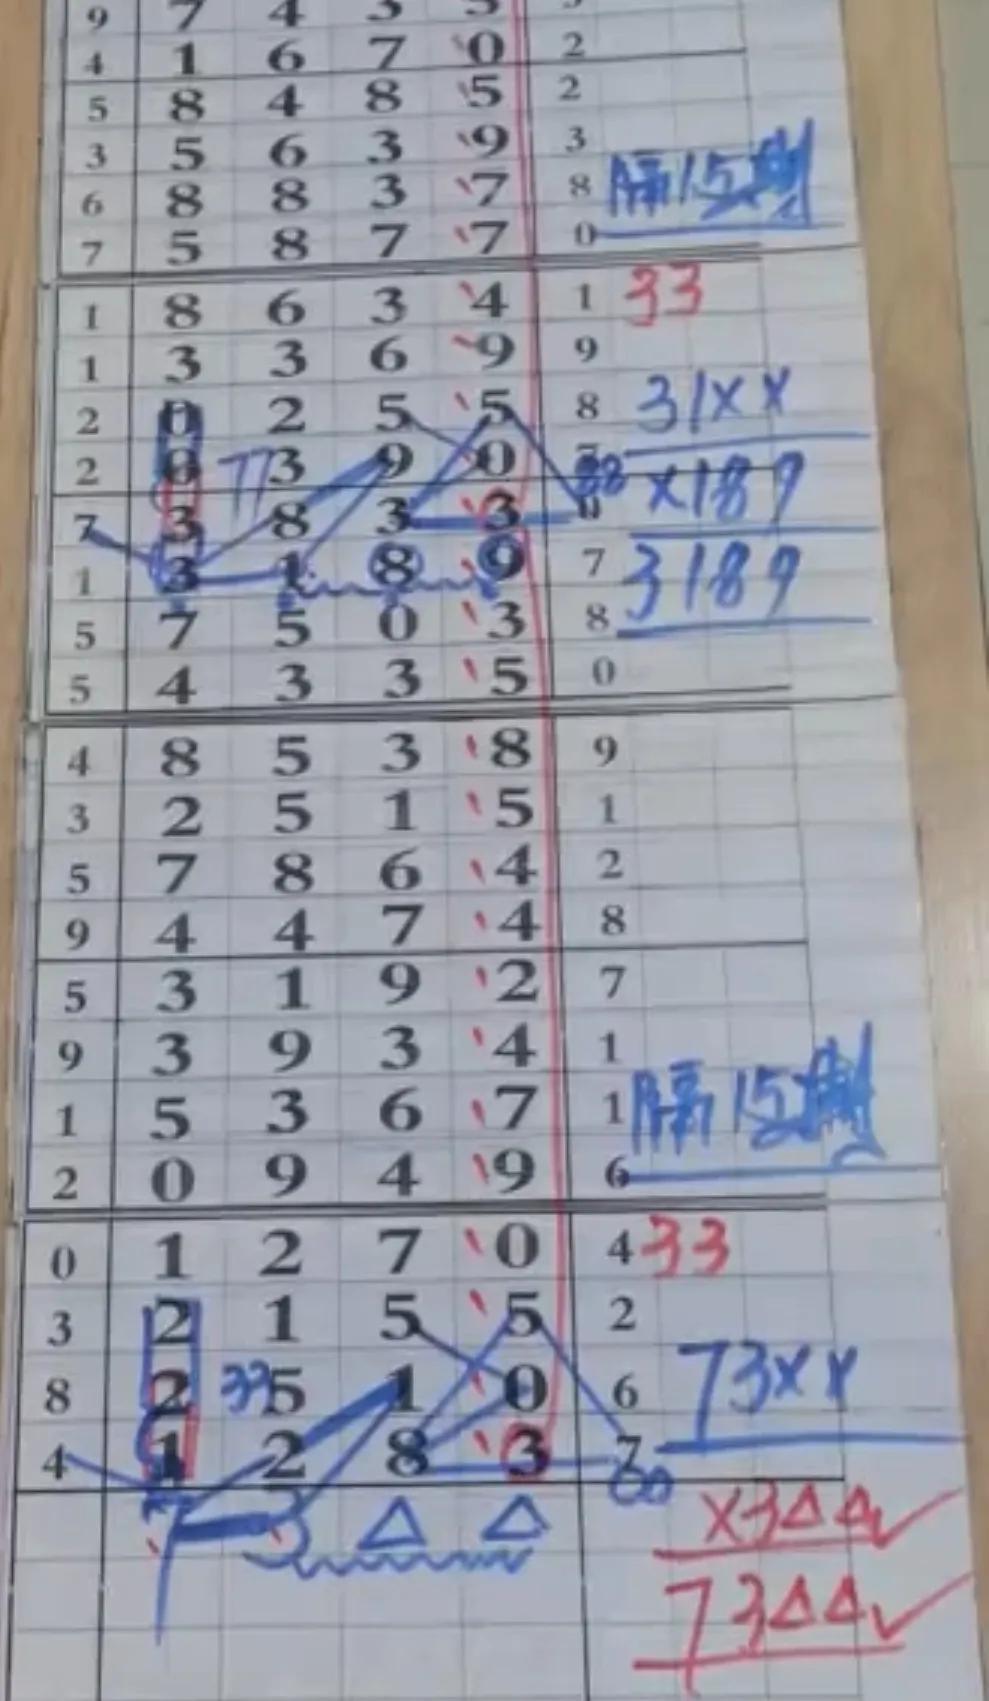 9 7 4 3 5
4 1 6 7 0 2
5 8 4 8 5 2
3 5 6 3 9 3
6 8 8 3 7 8 隔15期
7 5 8 7 7 0
1 8 6 3 4 1 33
1 3 3 6 9 9
2 0 2 5 5 8 31××
2 0 77 3 9 0
7 3 8 3 3 88 ×189
1 3 1 8 9 7 3189
5 7 5 0 3 8
5 4 3 3 5 0
4 8 5 3 8 9
3 2 5 1 5 1
5 7 8 6 4 2
9 4 4 7 4 8
5 3 1 9 2 7
9 3 9 3 4 1
1 5 3 6 7 1 隔15期
2 0 9 4 9 6
0 1 2 7 0 4 33
3 2 1 5 5 2
8 2 33 5 1 0 6 73××
4 1 2 8 3 7
7 3 △ △ ×3△△✓
73△△✓